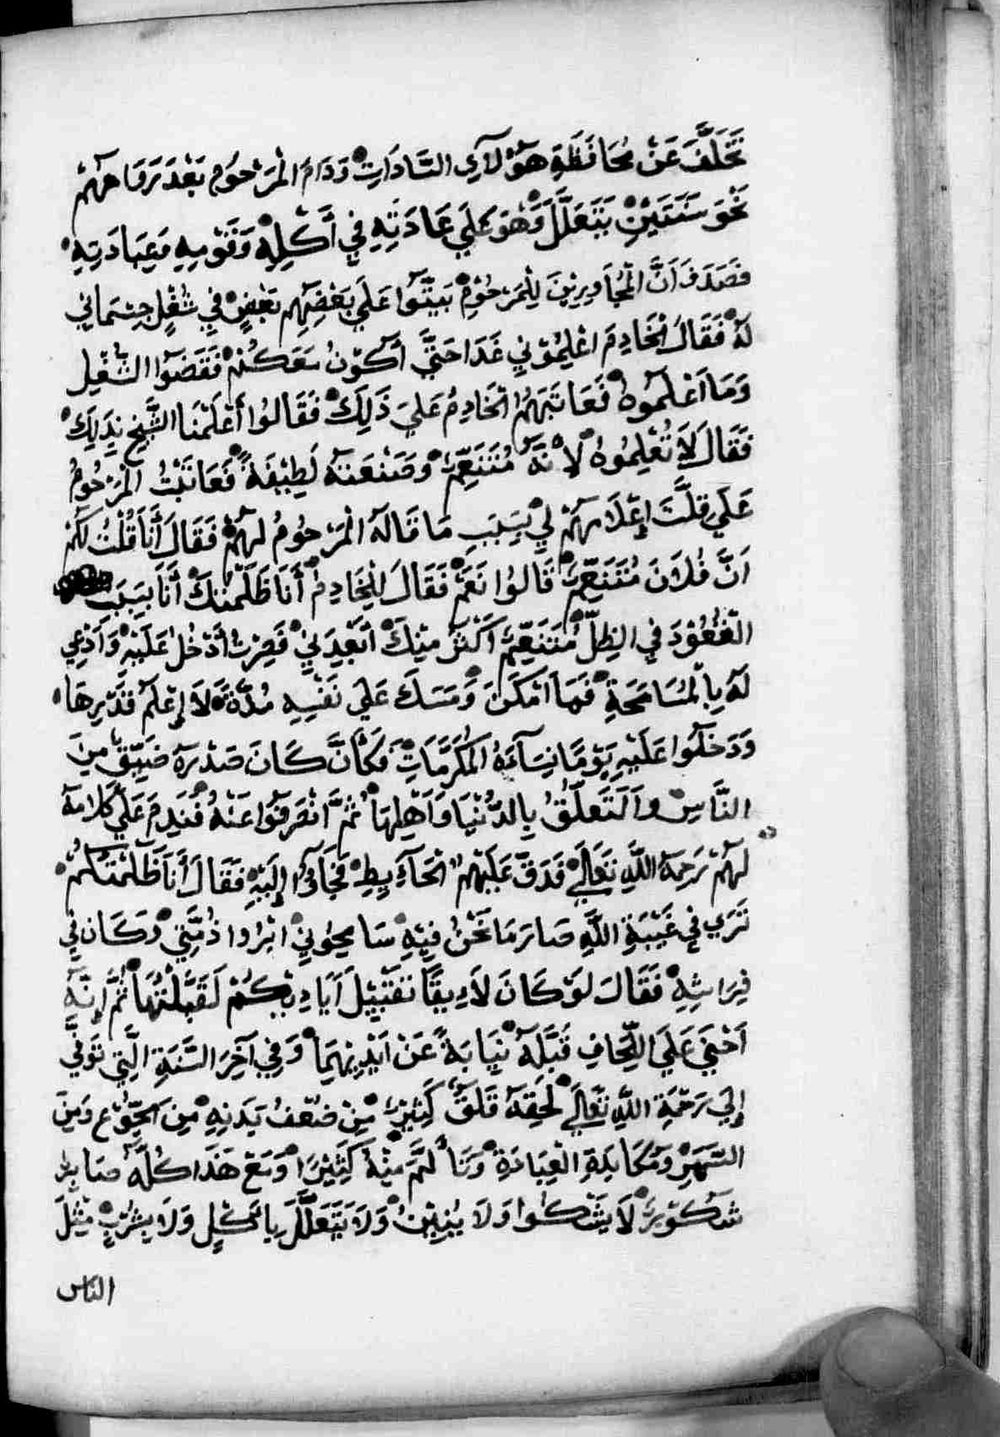 تَخَلَّفَ عَنْ مُحَافَظَةِ هَؤُلَآءِ السَّادَاتِ وَدَامَ الْمَرْحُومُ بَعْدَ
نَحْوَ سَنَتَيْنِ يَتَعَلَّلَ وَهُوَ عَلَي عَادَتِهِ فِي أَكْلِهِ وَنَوْمِهِ وَعِبَادَتِهِ
فَصَدَفَ اَنَّ الْمُجَاوِرِيْنَ لِلْمَرْحُوْمِ بَيَّتُوا عَلَي بَعْضِهِم بَعْضٍ فِي شُغْلٍ جِسْمَانِي
لَهُ فَقَالَ الْخَادِمَ اعْلِمُوْنِي غَدَا حَتَّي أَكُوْنُ مَعَكُمْ فَقَضَوُا الشُّغْلَ
وَمَا اَعْلَمُوهُ فَعَاتَبَهُمُ الْخَادِمُ عَلَيَ ذَلِكَ فَقَالُوا أَعْلَمْنَا الشَّيْخ بِذَلِكَ
فَقَالَ لَا تُعْلِمُوهُ لِأَنَّهُ مُتَنَعِّمٌ وَصَنْعَتَهُ لَطِيْفَةٌ فَعَاتَبْتُ الْمَرْحُومُ
عَلَي قِلَّتَ إِعْلَامِهِمْ لِي بِسَبَبِ مَا قَالَهُ الْمَرْحُومُ لَهُمْ فَقَالَ أَنَا قُلْتُ لَكُمْ
اَنَّ فُلَانَ مُتَنَعِّمٌ قَالُوا نَعَمْ فَقَالَ لِلْخَادِمُ أَنَا ظَلَمْتُكَ أَنَا بِسَبَبِ
الْقُعُوْدَ فِي الظِّلِّ مُتَنَعِّمٌ أَكْثَرُ مِنْكَ فَصِرْتُ أَدْخُل عَلَيْهِ وَاَدْعِي
لَهُ بِالْمُسَامَحَةِ فَمَا اَمْكَنَ وَمَسَكَ عَلَي نَفْسِهِ مُدَّةً لَا اِعْلَمْ قَدْرِهَا
وَدَخَلُوا عَلَيْهِ يَوْمًا نِسَآءَهُ الْمُكَرَّمَاتِ فَكَأَنَّ كَانَ صَدْرَهُ ضَيِّقٌ مِنَ
النَّاسِ وَاَلتَّعَلُّقُ بِالدُّنْيَا وَاَهْلِهَا ثُمَّ انْصَرَفُوا عَنْهُ فَنَدِمَ عَلَي كَلَامَهُ
لَهُمْ رَحِمَهُ اللَّهِ تَعَالَي فَدَقَّ عَلَيْهِم الْحَآءِيطِ فَجَآؤُا إِلَيْهِ فَقَالَ أَنَا ظَلَمْتُكُمْ
تَرَي فِي غَيْبَةِ اللَّهِ صَارَ مَا نَحْنُ فِيْهِ سَامِحُوْنِي ابْرُوا ذُمَّتِي وَكَانَ فِي
فِرَاشِهِ فَقَالَ لَوْ كَانَ لَاءِيقًا تَقْبِيْل اَيَادِيْكُمْ لَقَبَّلْتُهَا ثُمَّ اِنَّهُ
اَحْنَي عَلَي اللِّحَافِ قَبَّلَهُ نِيَابَةً عَنْ اَيْدِيْهِمَا وَفِي آخِرَ السَّنَةِ الَّتِي تُوُفِّي
إِلَي رَحْمَةِ اللَّهِ تَعَالَي لَحِقَهُ قَلَقٌ كَثِيْرٌ مِنْ ضُعْفُ بَدَنِهِ مِنَ الْجُوْعِ وَمِنَ
السَّهَرِ وَمُكَابَدَةِ الْعِبَادَةِ وَتَأَلَّمَ مِنْهُ كَثِيْرًا وَمَعَ هَذَا كُلَّهُ صَابِرٌ
شَكُوْرٌ لَا يَشْكُوا وَلَا يُبْيِنُ وَلَا يَتَعَلَّلَ بِاَكْلٍ وَلَا بِشُرْبٍ مِثْلَ
الناس